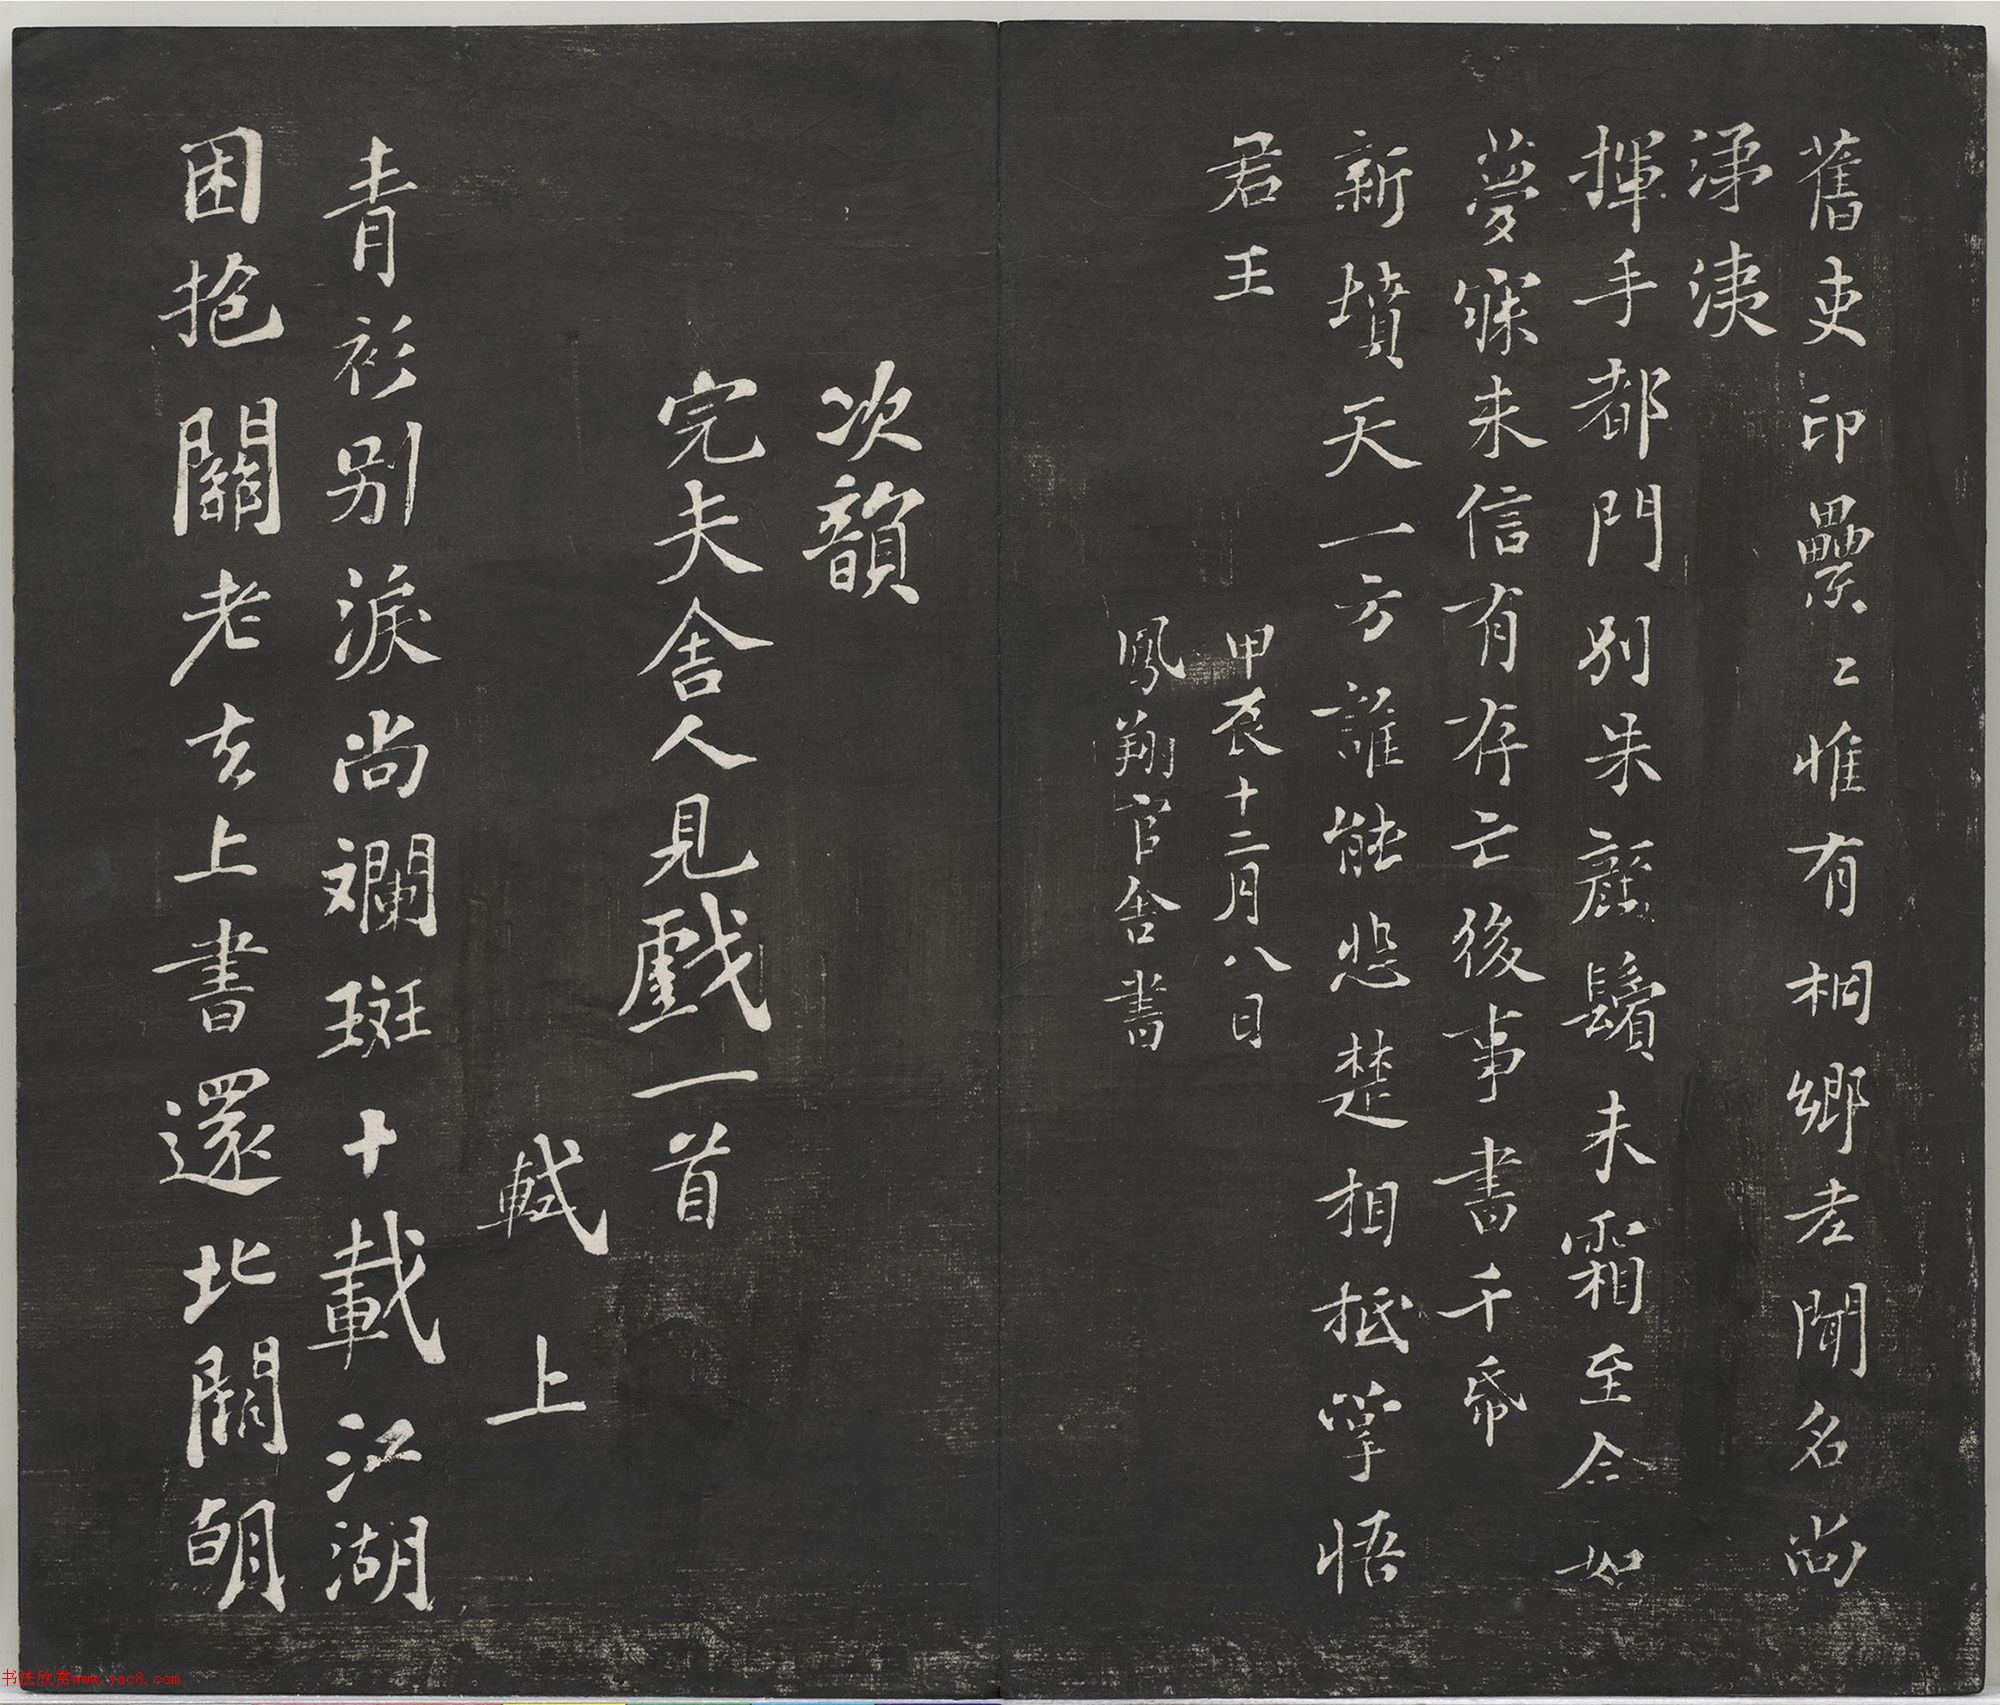 舊吏印纍〻惟有桐鄉老聞名尚
涕洟
揮手都門別朱顏鬢未霜至今如
夢寐未信有存亡後事書千帋
新墳天一方誰能悲楚相抵掌悟
君王
甲辰十二月八日
鳳翔官舍書
次韻
完夫舍人見戲一首
軾上
青衫別淚尚斕斑十載江湖
困抱關老去上書還北闕朝
书法欣赏www.yac8.com